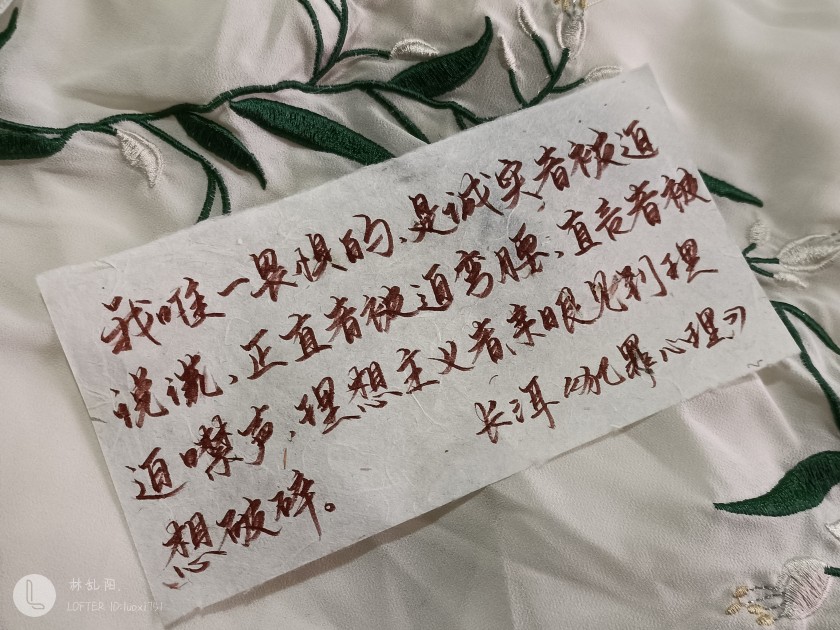 我唯一畏惧的、是诚实者被迫
说谎、正直者被迫弯腰、直言者被
迫噤声、理想主义者亲眼见到理
想破碎。
长洱《犯罪心理》
林乱阳.
LOFTER ID:luoxi791